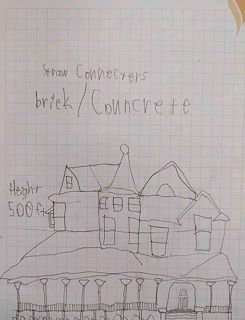 straw Connecters
brick/Councrete
Height
500ft